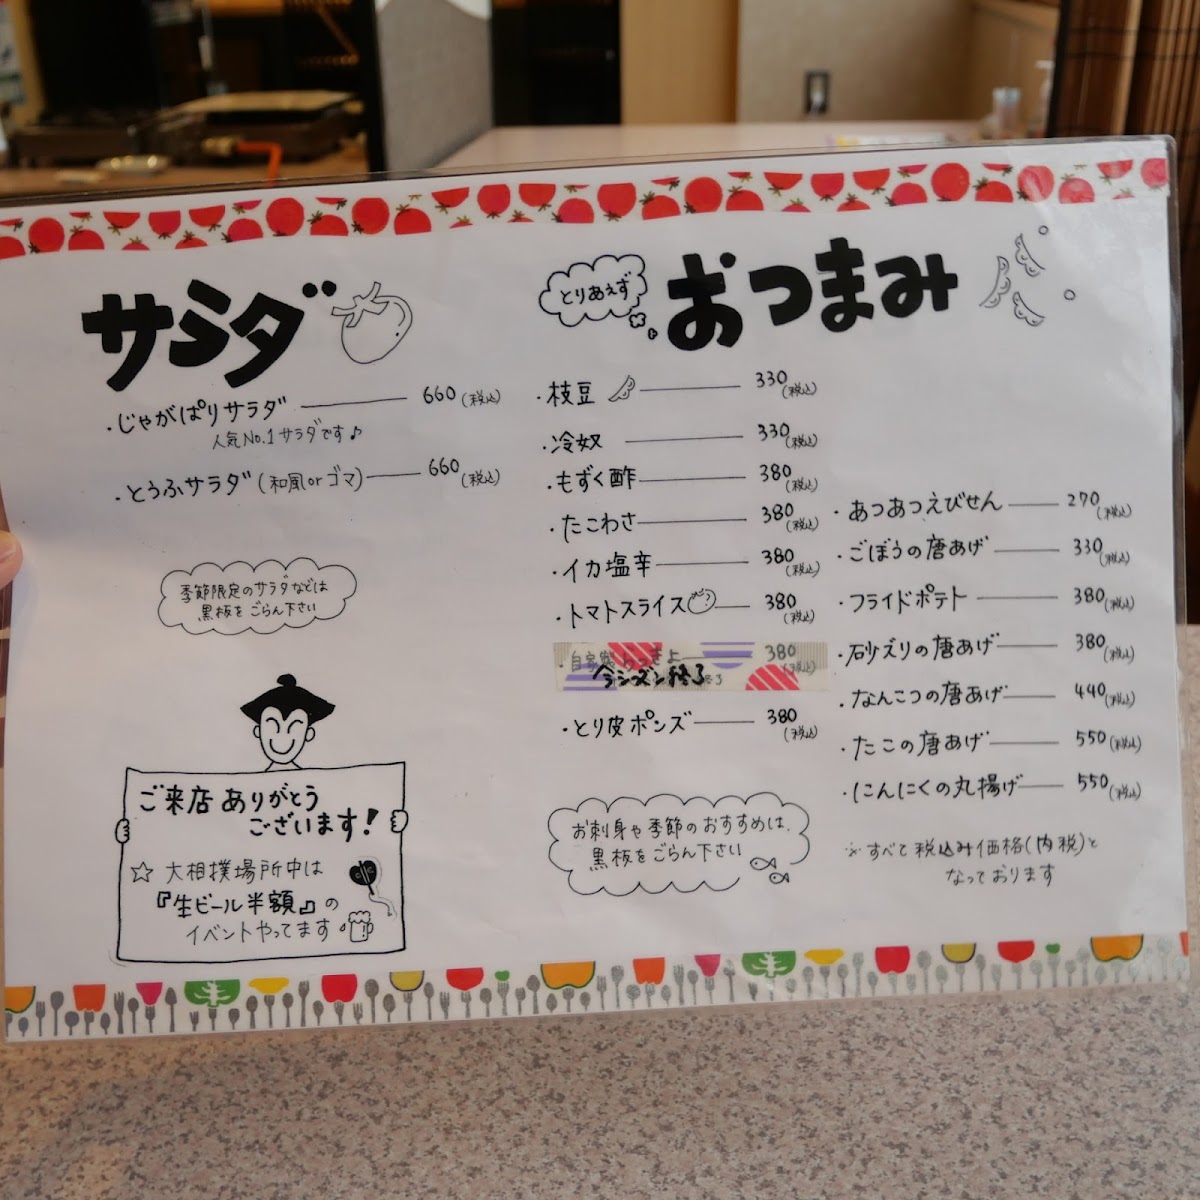 サラダ
・じゃがぱりサラダ 660(税込)
人気No.1サラダです♪
・とうふサラダ(和風orゴマ) 660(税込)
季節限定のサラダなどは
黒板をごらん下さい
ご来店ありがとう
ございます!
☆大相撲場所中は
『生ビール半額』の
イベントやってます
とりあえず
おつまみ
・枝豆 330(税込)
・冷奴 330(税込)
・もずく酢 380(税込)
・たこわさ 380(税込)
・イカ塩辛 380(税込)
・トマトスライス 380(税込)
・自家製らっきょ 380(税込)
今シーズン終了
・とり皮ポンズ 380(税込)
お刺身や季節のおすすめは、
黒板をごらん下さい
・あつあつえびせん 270(税込)
・ごぼうの唐あげ 330(税込)
・フライドポテト 380(税込)
・砂ズリの唐あげ 380(税込)
・なんこつの唐あげ 440(税込)
・たこの唐あげ 550(税込)
・にんにくの丸揚げ 550(税込)
※すべて税込み価格(内税)と
なっております